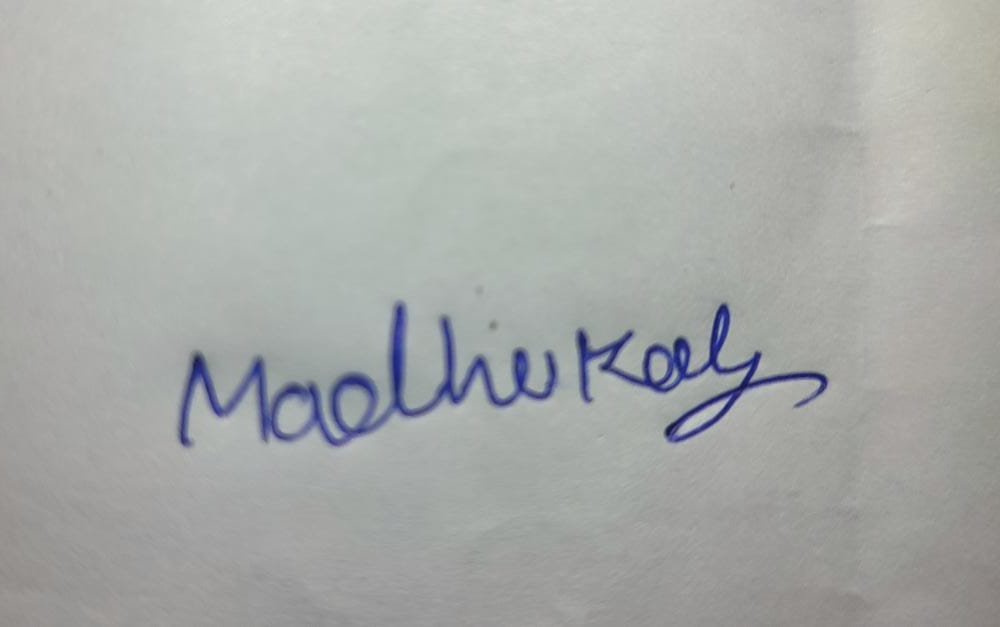 Madhu Kaly